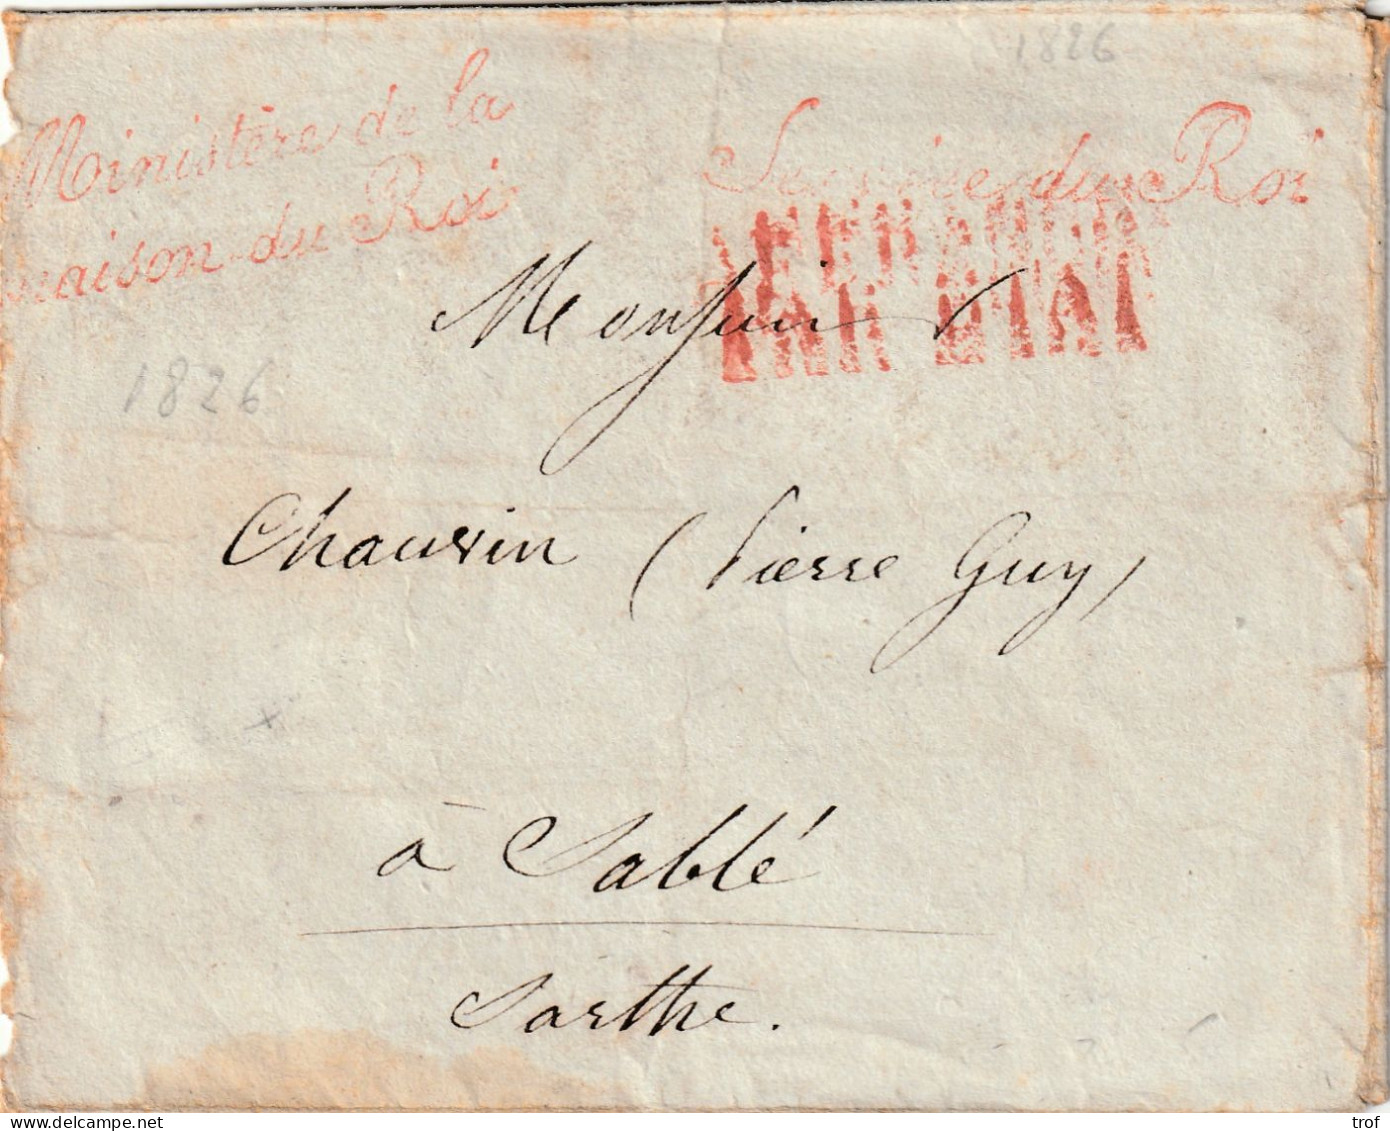 1826
Ministère de la
maison du Roi
Service du Roi
PAR ETAT
Monsieur
1826
Chauvin (Pierre Guy)
à Sablé
Sarthe.
delcampe.net
trof